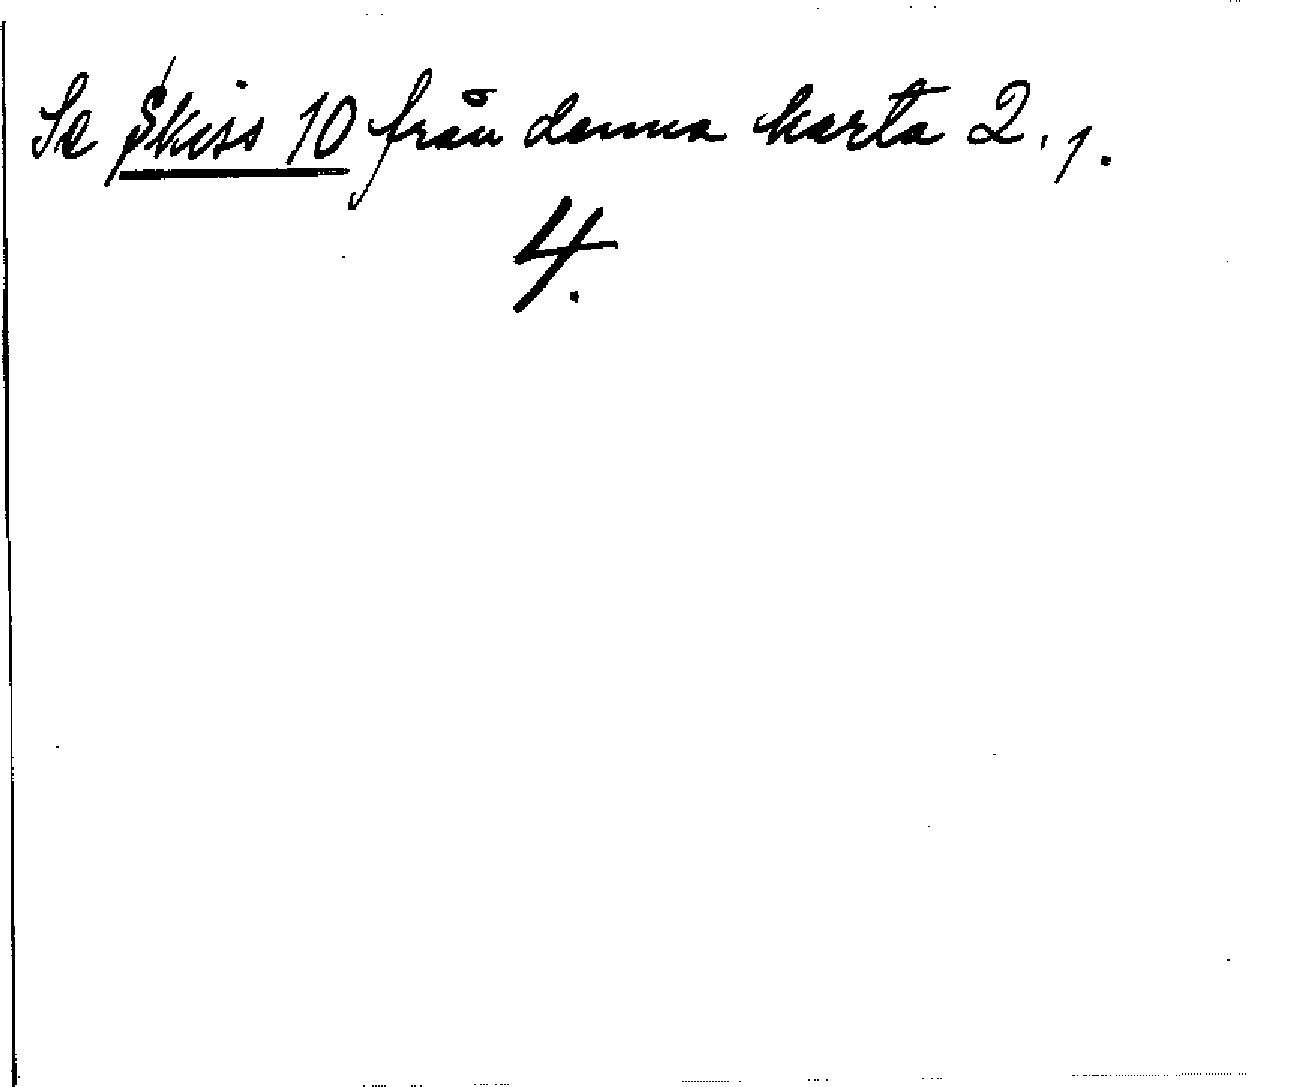 Se Skiss 10 från denna karta 2.1.
4.